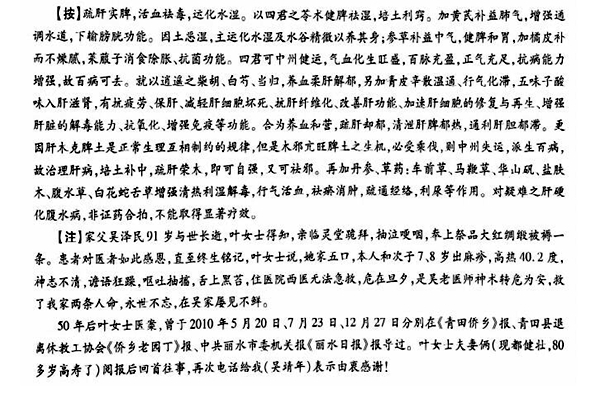 【按】疏肝实脾，活血祛毒，运化水湿。以四君之苓术健脾祛湿，培土利窍。加黄芪补益肺气，增强通
调水道，下输膀胱功能。因土恶湿，主运化水湿及水谷精微以养其身；参草补益中气，健脾和胃，加橘皮补
而不燥腻，莱菔子消食除胀、抗菌功能。四君可中州健运，气血化生叵盛，百脉充盈，正气充足，抗病能力
增强，故百病可去。就以逍遥之柴胡、白芍、当归，养血柔肝解郁，另加青皮辛散温通、行气化滞，五味子酸
味入肝滋肾，有抗疲劳、保肝、减轻肝细胞坏死、抗肝纤维化、改善肝功能、加速肝细胞的修复与再生、增强
肝脏的解毒能力、抗氧化、增强免疫等功能。合为养血和营，疏肝却郁，清泄肝脾郁热，通利肝胆郁滞。更
因肝木克脾土是正常生理互相制约的规律，但是木邪亢旺脾土之生机，必受乘伐，则中州失运，派生百病，
故治理肝病，培土补中，疏肝荣木，即可自强，又可祛邪。再加丹参、草药：车前草、马鞭草、华山矾、盐肤
木、腹水草、白花蛇舌草增强清热利湿解毒，行气活血，祛瘀消肿，疏通经络，利尿等作用。对疑难之肝硬
化腹水病，非证药合拍，不能取得显著疗效。
【注】家父吴泽民91岁与世长逝，叶女士得知，亲临灵堂跪拜，抽泣哽咽，奉上祭品大红绸缎被褥一
条。患者对医者如此感恩，直至终生铭记，叶女士说，她家五口，本人和次子7、8岁出麻疹，高热40.2度，
神志不清，谵语狂躁，呕吐抽搐，舌上黑苔，住医院西医无法急救，危在旦夕，是吴老医师神术转危为安，救
了我家两条人命，永世不忘，在吴家屡见不鲜。
50年后叶女士医案，曾于2010年5月20日、7月23日、12月27日分别在《青田侨乡》报、青田县退
离休教工协会《侨乡老园丁》报、中共丽水市委机关报《丽水日报》报导过。叶女士夫妻俩（现都健壮，80
多岁高寿了）阅报后回首往事，再次电话给我（吴靖年）表示由衷感谢！